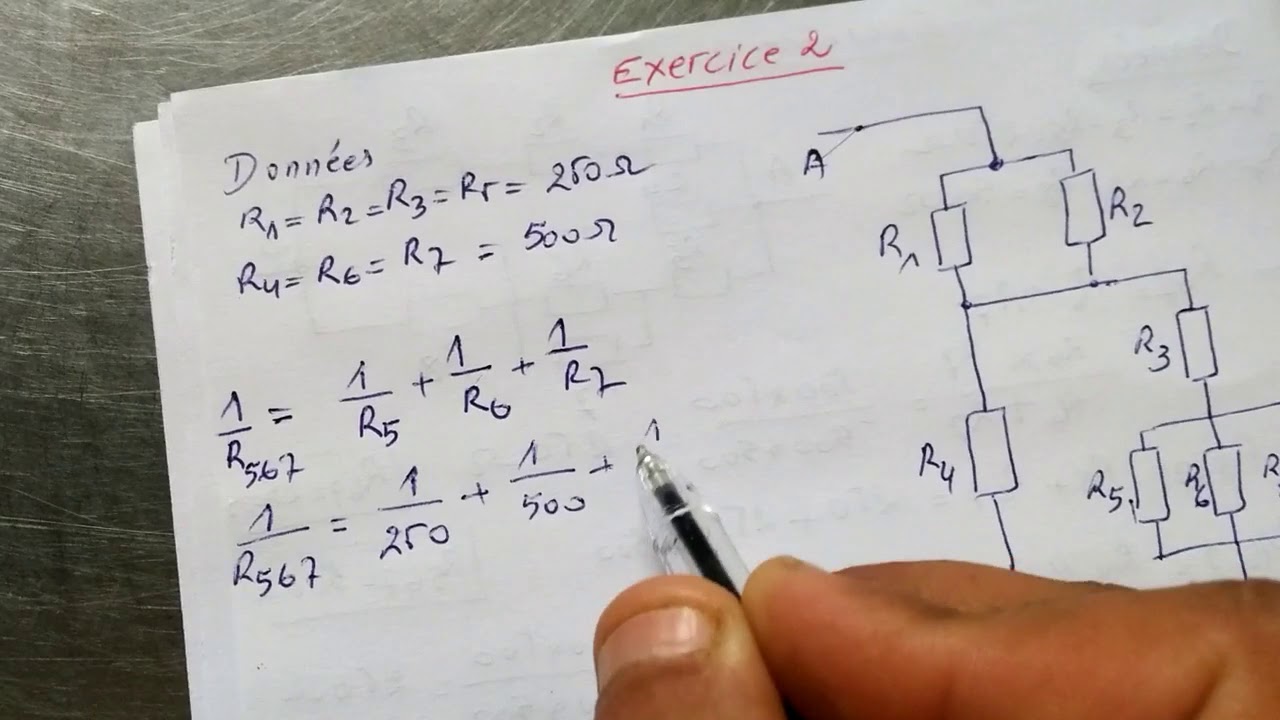 Exercice 2
Données
R1 = R2 = R3 = R5 = 250Ω
R4 = R6 = R7 = 500Ω
1/R567 = 1/R5 + 1/R6 + 1/R7
1/R567 = 1/250 + 1/500 + 1
A
R1
R2
R3
R4
R5
R6